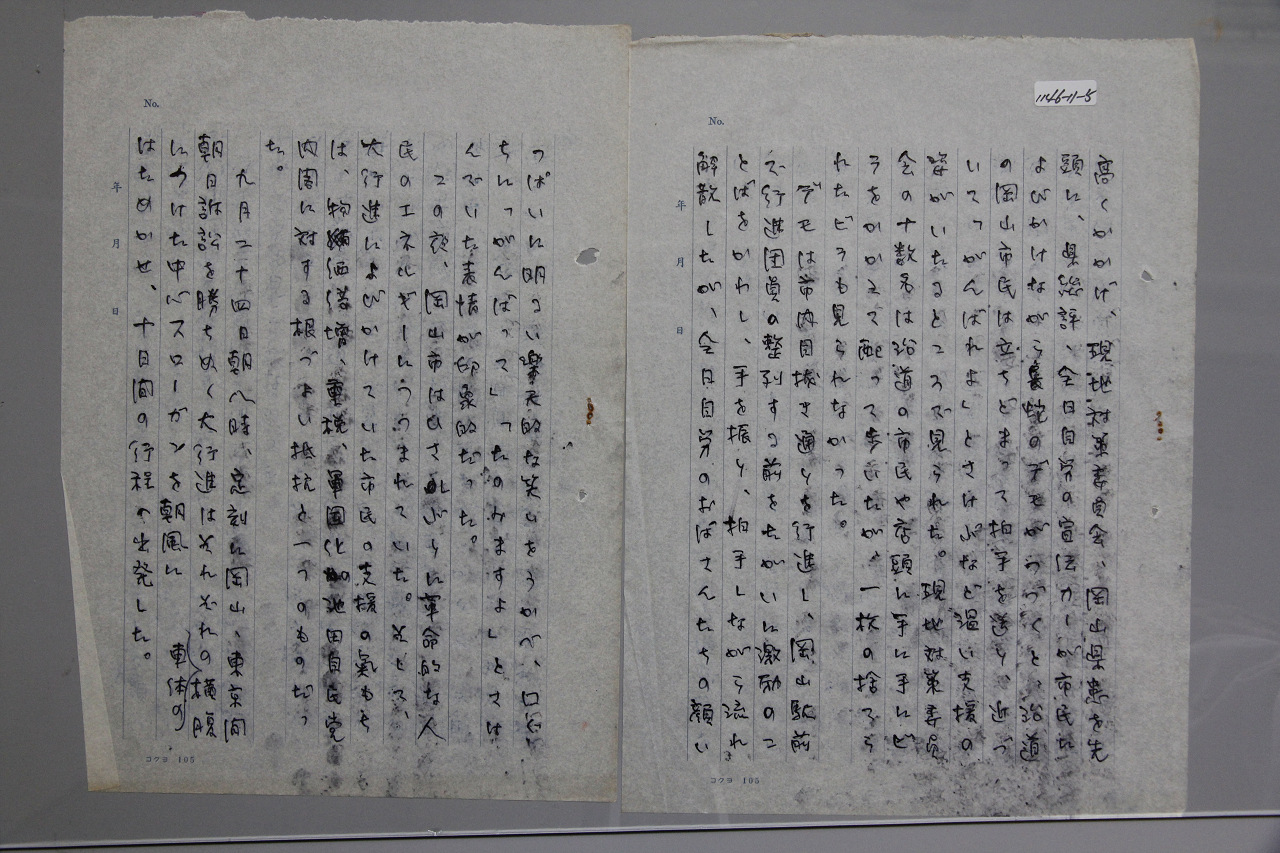 1146-11-5
No.
年 月 日
高くかかげ、現地対策委員会、岡山県患を先
頭に、県総評、全日自労の宣伝カーが市民に
よびかけながら長蛇のデモがつづくと、沿道
の岡山市民は立ちどまって拍手を送り、近づ
いて「がんばれよ」とさけぶなど温い支援の
姿がいたるところで見られた。現地対策委員
会の十数名は沿道の市民や店頭に手に手にビ
ラをかかえて配って歩いたが、一枚の捨てら
れたビラも見られなかった。
デモは市内目抜き通りを行進し、岡山駅前
で行進団員の整列する前をたがいに激励のこ
とばをかわし、手を振り、拍手しながら流れ
解散したが、全日自労のおばさんたちの顔い
コクヨ 105
No.
年 月 日
っぱいに明るい楽天的な笑いをうかべ、口ぐ
ちに「がんばって」「たのみますよ」とさけ
んでいた表情が印象的だった。
この夜、岡山市はひさしぶりに革命的な人
民のエネルギーにうずまれていた。そして、
大行進によびかけていた市民の支援の気もち
は、物価倍増、重税、軍国化の池田自民党
内閣に対する根づよい抵抗と一つのものだっ
た。
九月二十四日朝八時、定刻に岡山、東京間
朝日訴訟を勝ちぬく大行進はそれぞれの横腹
車体の
につけた中心スローガンを朝風に
はためかせ、十日間の行程へ出発した。
コクヨ 105